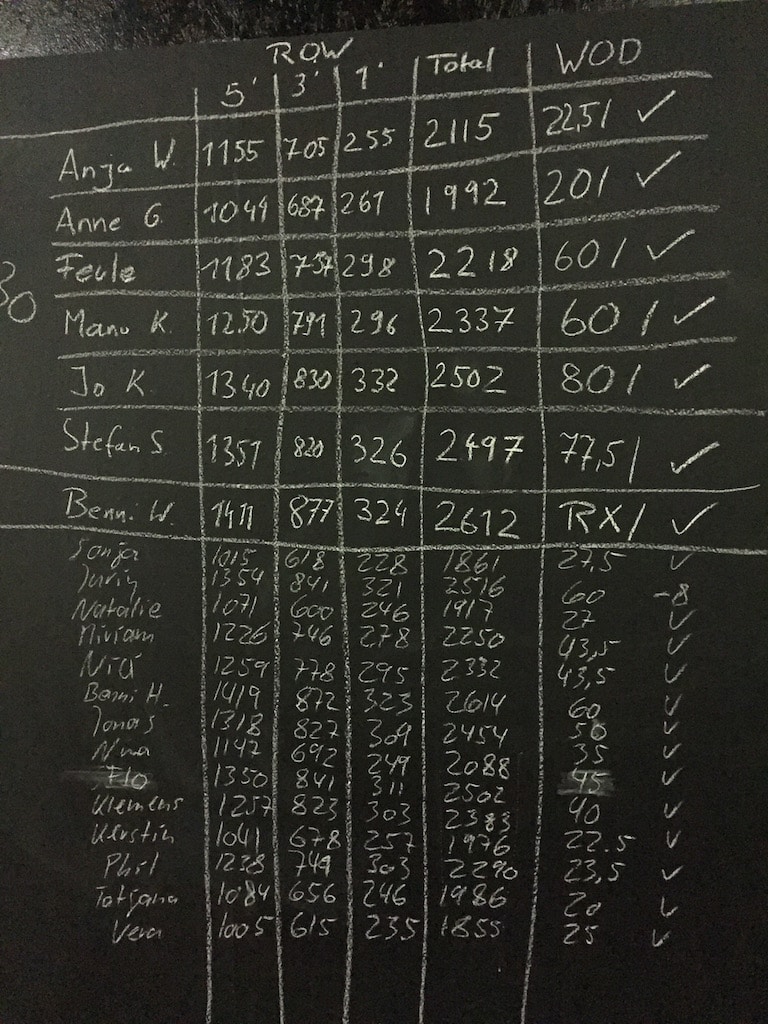 ROW
5' 3' 1' Total WOD
Anja W. 1155 705 255 2115 22,5/ ✓
Anne G. 1044 687 261 1992 20/ ✓
Feule 1183 737 298 2218 60/ ✓
30
Manu K. 1250 791 296 2337 60/ ✓
Jo K. 1340 830 332 2502 80/ ✓
Stefan S 1351 820 326 2497 77,5/ ✓
Benni W. 1411 877 324 2612 RX/ ✓
Sonja 1015 618 228 1861 27,5 ✓
1354 841 321 2516 60 -8
Natalie 1071 600 246 1917 27 ✓
Miriam 1226 746 278 2250 43,5 ✓
1259 778 295 2332 43,5 ✓
Benni H. 1419 872 323 2614 60 ✓
Jonas 1318 827 309 2454 50 ✓
Nina 1147 692 249 2088 35 ✓
Flo 1350 841 311 2502 45 ✓
Klemens 1257 823 303 2383 40 ✓
Kerstin 1041 678 257 1976 22.5 ✓
Phil 1238 749 303 2290 23,5 ✓
Tatjana 1084 656 246 1986 20 ✓
Vera 1005 615 235 1855 25 ✓